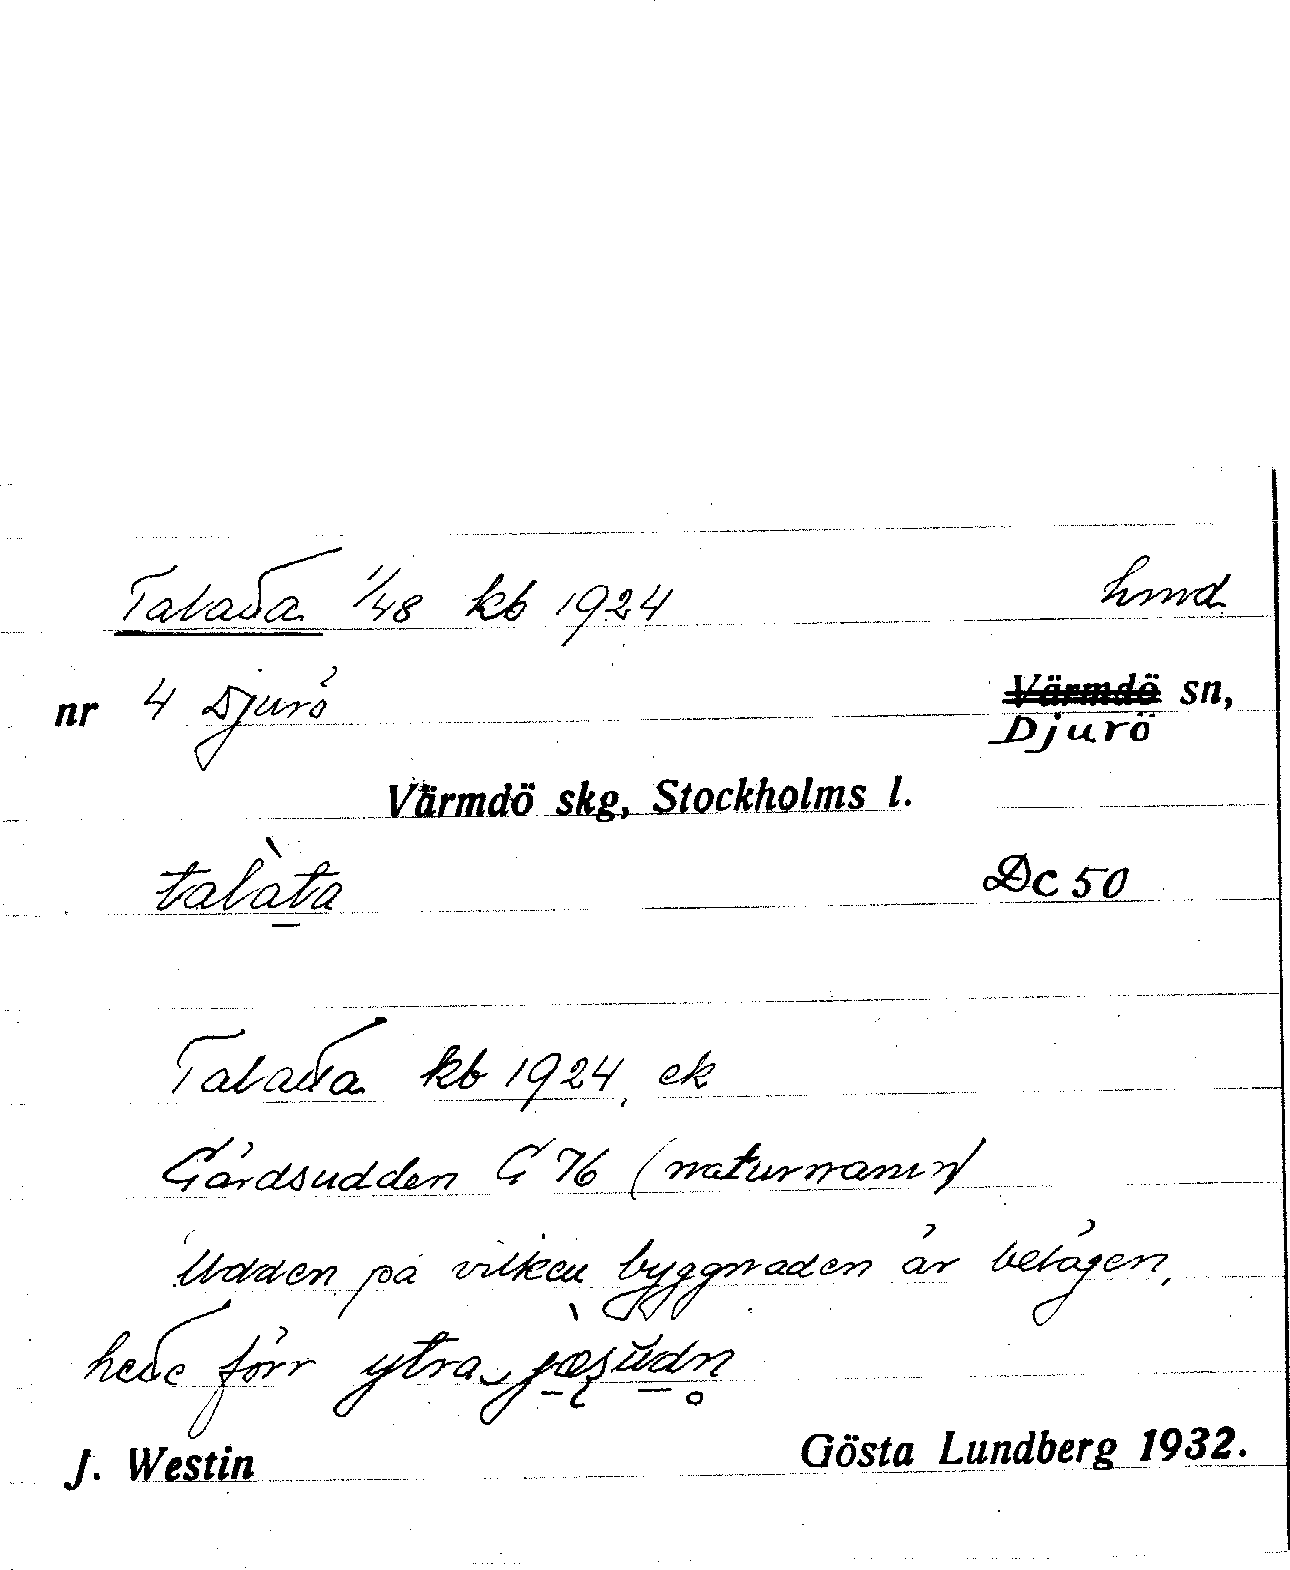 Talatta 1/48 kb 1924 hmd.
nr 4 Djurö Värmdö sn,
Djurö
Värmdö skg, Stockholms l.
talàta Dc 50
Talatta kb 1924, ek
Gårdsudden G 76 (naturnamn)
Udden på vilken byggnaden är belägen,
hette förr ytra
J. Westin Gösta Lundberg 1932.